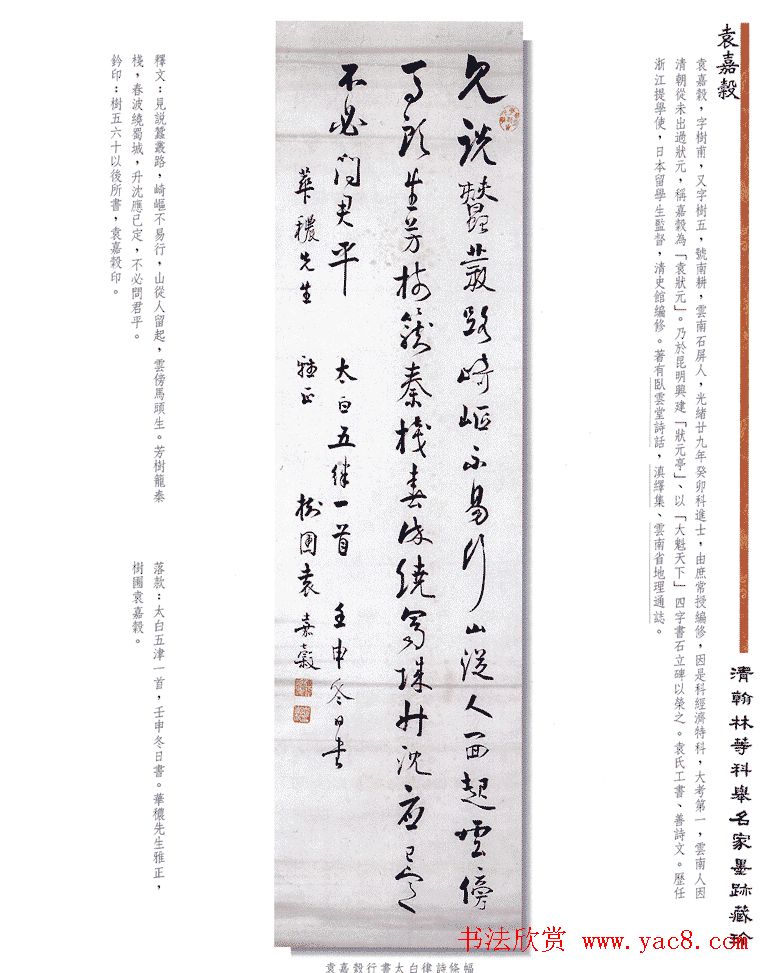 袁嘉穀
袁嘉穀，字樹甫，又字樹五，號南耕，雲南石屏人，光緒廿九年癸卯科進士，由庶常授編修，因是科經濟特科，大考第一，雲南人因
清朝從未出過狀元，稱嘉穀為「袁狀元」。乃於昆明興建「狀元亭」、以「大魁天下」四字書石立碑以榮之。袁氏工書、善詩文。歷任
浙江提學使，日本留學生監督，清史館編修。著有臥雲堂詩話，滇繹集、雲南省地理通誌。
清翰林等科舉名家墨跡藏珍
見説蠶叢路崎嶇不易行山從人面起雲傍
馬頭生芳樹籠秦棧春波繞蜀城升沈應已定
不必問君平 太白五律一首 壬申冬日書
華穠先生 雅正 樹圃袁嘉穀
釋文：見説蠶叢路，崎嶇不易行，山從人留起，雲傍馬頭生。芳樹籠秦
棧，春波繞蜀城，升沈應已定，不必問君平。
鈐印：樹五六十以後所書，袁嘉穀印。
落款：太白五津一首，壬申冬日書。華穠先生雅正，
樹圃袁嘉穀。
书法欣赏 www.yac8.com
袁嘉穀行書太白律詩條幅